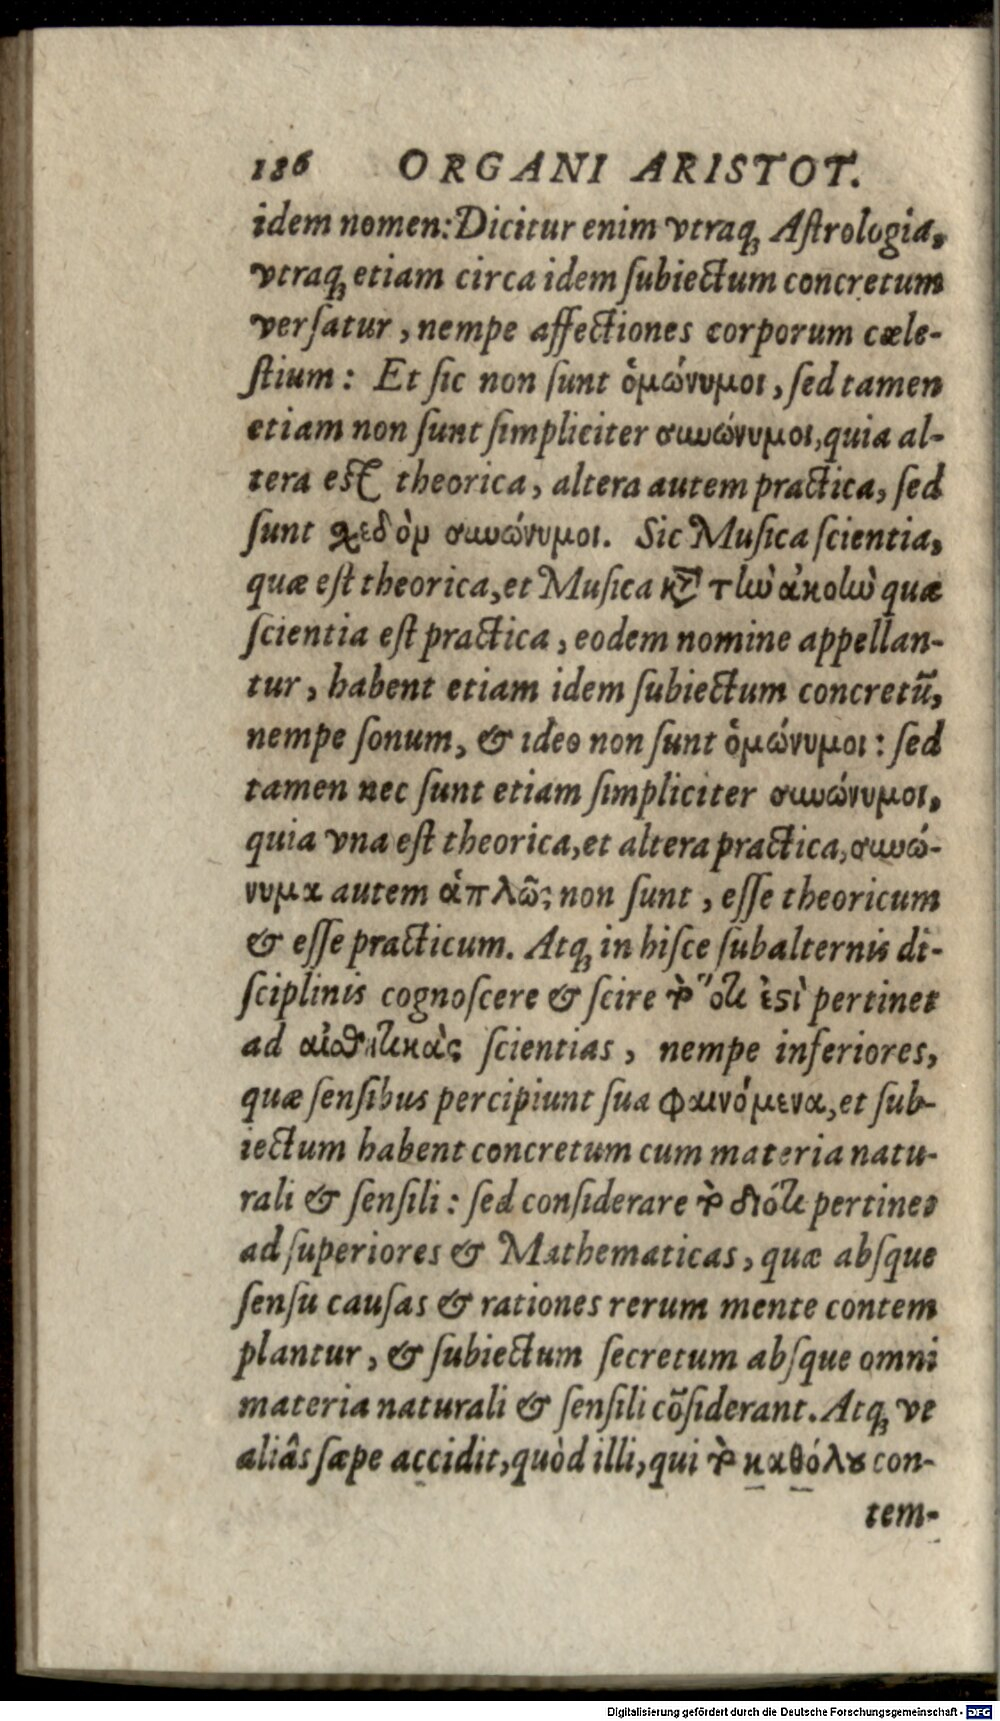 186 ORGANI ARISTOT.
idem nomen: Dicitur enim vtraq; Aſtrologia,
vtraq; etiam circa idem ſubiectum concretum
verſatur, nempe affectiones corporum cæle-
ſtium: Et ſic non ſunt ὁμώνυμοι, ſed tamen
etiam non ſunt ſimpliciter συνώνυμοι, quia al-
tera eſt theorica, altera autem practica, ſed
ſunt χεδὸμ συνώνυμοι. Sic Muſica ſcientia,
quæ eſt theorica, et Muſica κỳ τὴν ἀκοὴν quæ
ſcientia eſt practica, eodem nomine appellan-
tur, habent etiam idem ſubiectum concretũ,
nempe ſonum, & ideo non ſunt ὁμώνυμοι: ſed
tamen nec ſunt etiam ſimpliciter συνώνυμοι,
quia vna eſt theorica, et altera practica, συνώ-
νυμα autem ἁπλῶς non ſunt, eſſe theoricum
& eſſe practicum. Atq; in hiſce ſubalternis di-
ſciplinis cognoſcere & ſcire τὸ ὅτι ἐστὶ pertinet
ad αἰσθητικὰς ſcientias, nempe inferiores,
quæ ſenſibus percipiunt ſua φαινόμενα, et ſub-
iectum habent concretum cum materia natu-
rali & ſenſili: ſed conſiderare τὸ διότι pertinet
ad ſuperiores & Mathematicas, quæ abſque
ſenſu cauſas & rationes rerum mente contem
plantur, & ſubiectum ſecretum abſque omni
materia naturali & ſenſili cõſiderant. Atq; vt
aliâs ſæpe accidit, quòd illi, qui τὸ καθόλου con-
tem-
Digitalisierung gefördert durch die Deutsche Forschungsgemeinschaft - DFG